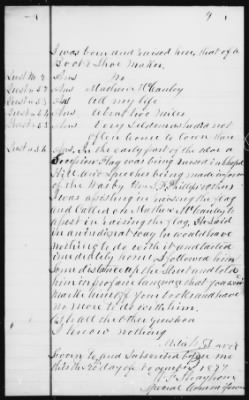 9
I was born and raised here, that of a
Boot & Shoe Maker.
Ans No
Ans Mathew McCauley
Ans All my life
Ans About two miles
Ans Very Seldom as I was not
often home to town then
Ans. In the early part of the war a
Secession Flag was being raised in Chapel
Hill and Speeches being made in favor
of the War by Hon. S. F. Phillips others
I was assisting in raising the flag
and Called on Mathew McCauley to
assist in raising the flag, He said
in an way he would have
nothing to do with it and started
immediately home, I followed him
some distance up the Street and told
him in profane language that you will
mark him off your books and have
no more to do with him.
To all the other question
I know nothing
Sworn to and Subscribed before me
this the 20 day of 1877
Special